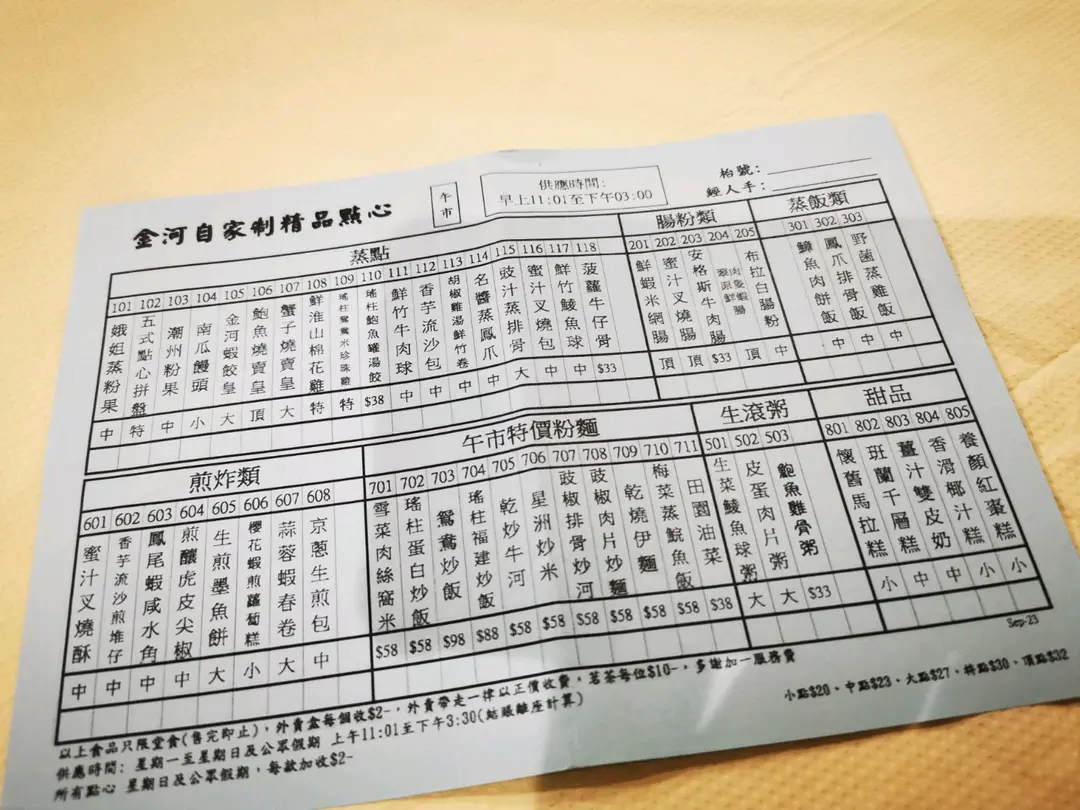 金河自家制精品點心
午市
供應時間:
早上11:01至下午03:00
枱號:
經人手:
蒸點
101 102 103 104 105 106 107 108 109 110 111 112 113 114 115 116 117 118
娥姐蒸粉果
五式點心拼盤
潮州粉果
南瓜饅頭
金河蝦餃皇
鮑魚燒賣皇
蟹子燒賣皇
鮮淮山棉花雞
瑤柱鴛鴦米珍珠雞
瑤柱鮑魚罐湯餃
鮮竹牛肉球
香芋流沙包
胡椒雞湯鮮竹卷
名醬蒸鳳爪
豉汁蒸排骨
蜜汁叉燒包
鮮竹鯪魚球
菠蘿牛仔骨
中 特 中 小 大 頂 大 特 特 $38 中 中 中 中 大 中 中 $33
腸粉類
201 202 203 204 205
鮮蝦米網腸
蜜汁叉燒腸
安格斯牛肉腸
布拉白腸粉
頂 頂 $33 頂 中
蒸飯類
301 302 303
鱆魚肉餅飯
鳳爪排骨飯
野菌蒸雞飯
中 中 中
煎炸類
601 602 603 604 605 606 607 608
蜜汁叉燒酥
香芋流沙煎堆仔
鳳尾蝦咸水角
煎釀虎皮尖椒
生煎墨魚餅
櫻花蝦煎蘿蔔糕
蒜蓉蝦春卷
京蔥生煎包
中 中 中 中 大 小 大 中
午市特價粉麵
701 702 703 704 705 706 707 708 709 710 711
雪菜肉絲窩米
瑤柱蛋白炒飯
鴛鴦炒飯
瑤柱福建炒飯
乾炒牛河
星洲炒米
豉椒排骨炒河
豉椒肉片炒麵
乾燒伊麵
梅菜蒸鯇魚飯
田園油菜
$58 $58 $98 $88 $58 $58 $58 $58 $58 $58 $38
生滾粥
501 502 503
生菜鯪魚球粥
皮蛋肉片粥
鮑魚雞骨粥
大 大 $33
甜品
801 802 803 804 805
懷舊馬拉糕
班蘭千層糕
薑汁雙皮奶
香滑椰汁糕
養顏紅棗糕
小 中 中 小 小
Sep-23
以上食品只限堂食(售完即止)，外賣盒每個收$2-，外賣帶走一律以正價收費，茗茶每位$10-，多謝加一服務費
供應時間: 星期一至星期日及公眾假期 上午11:01至下午3:30(結賬離座計算)
所有點心 星期日及公眾假期，每款加收$2-
小點$20、中點$23、大點$27、特點$30、頂點$32